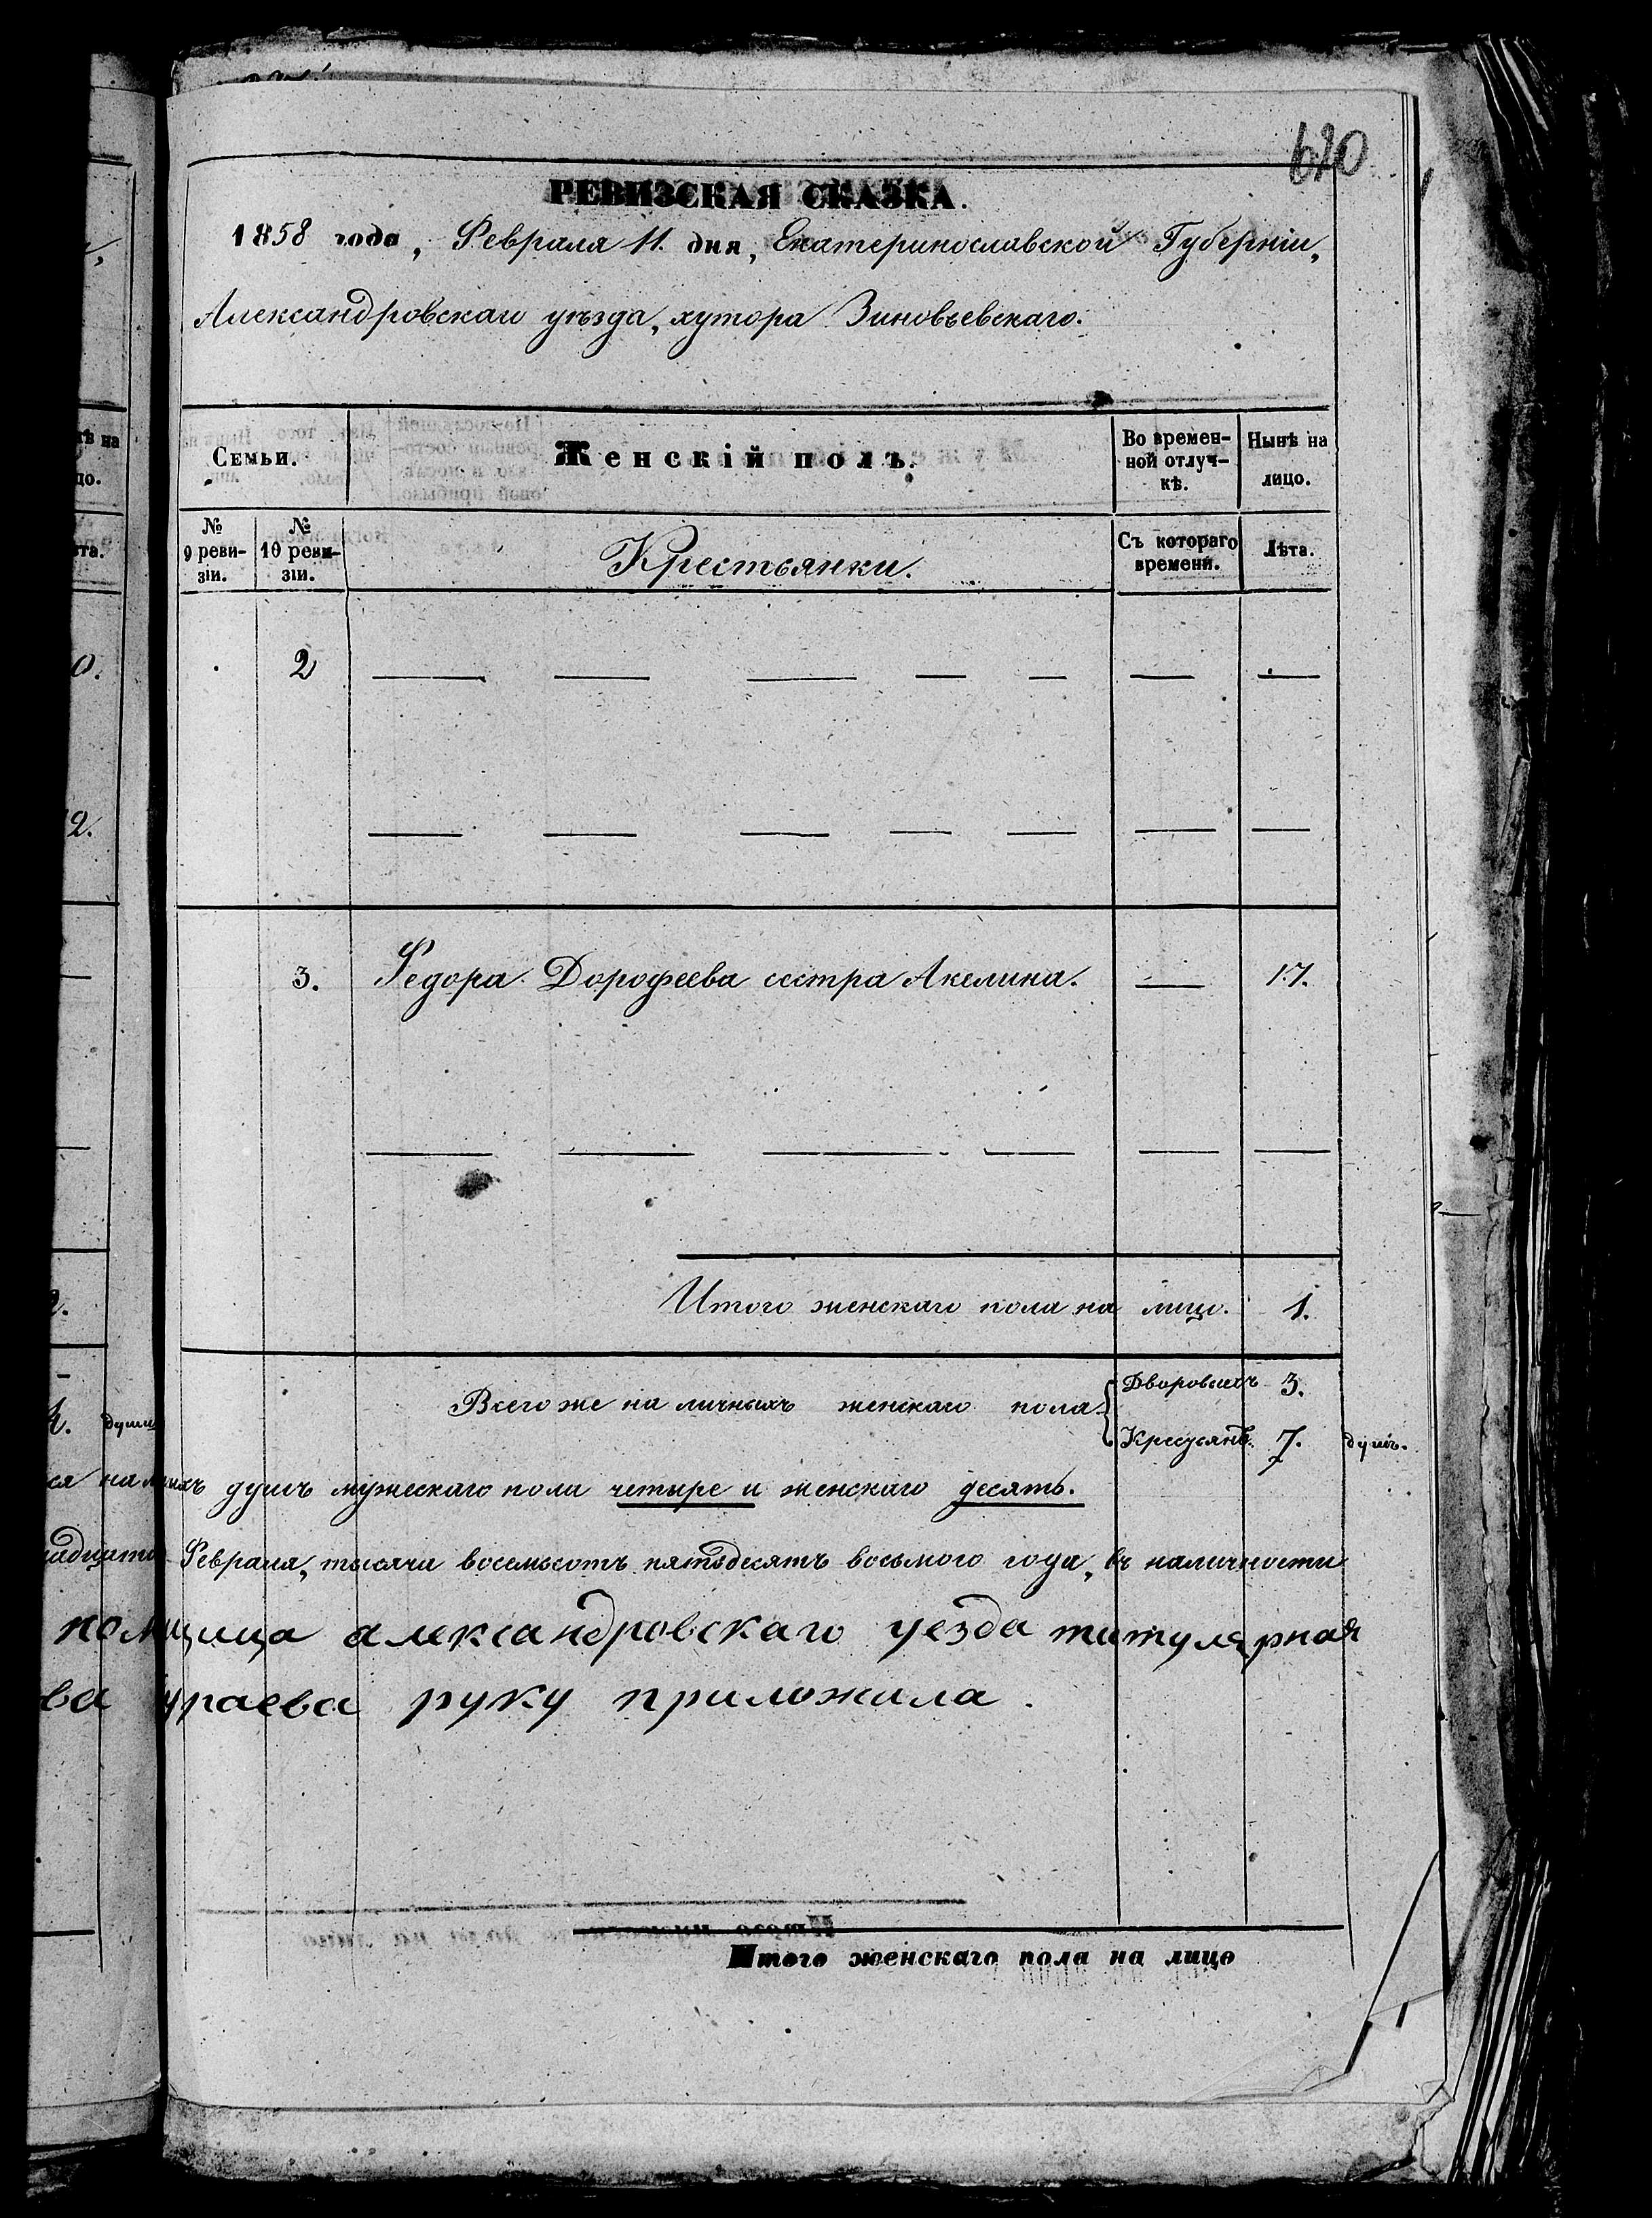 620
РЕВИЗСКАЯ СКАЗКА.
1858 года, Февраля 11. дня, Екатеринославской Губерніи,
Александровскаго уѣзда, хутора Зиновьевскаго.
Семьи.
Женскій полъ.
Во времен-
ной отлуч-
кѣ.
Нынѣ на
лицо.
№
9 реви-
зіи.
№
10 реви-
зіи.
Крестьянки.
Съ котораго
времени.
Лѣта.
2
3. Федора Дорофеева сестра Акелина. 17.
Итого женскаго пола на лицо. 1.
Всего же на личныхъ женскаго пола
Дворовыхъ 3.
Крестьянъ 7. душъ.
душъ мужескаго пола четыре и женскаго десять.
Февраля, тысяча восемьсотъ пятьдесятъ восьмого года, въ наличности
александровскаго уезда титулярная
ураева руку приложила.
Итого женскаго пола на лицо